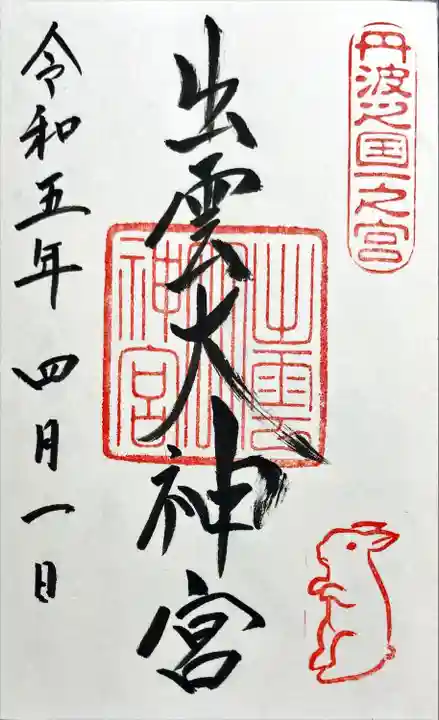 丹波之国一之宮
出雲大神宮
出雲大神宮
令和五年四月一日